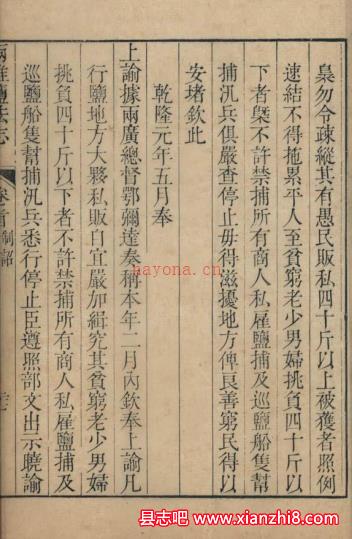 梟勿令疎縱其有愚民販私四十斤以上被獲者照例
速結不得拖累平人至貧窮老少男婦挑負四十斤以
下者槩不許禁捕所有商人私雇鹽捕及巡鹽船隻幫
捕汛兵俱嚴查停止毋得滋擾地方俾良善窮民得以
安堵欽此
乾隆元年五月奉
上諭據兩廣總督鄂彌達奏稱本年二月內欽奉上諭凡
行鹽地方大夥私販自宜嚴加緝究其貧窮老少男婦
挑負四十斤以下者不許禁捕所有商人私雇鹽捕及
巡鹽船隻幫捕汛兵悉行停止臣遵照部文出示曉諭
兩淮鹽法志
卷首 制詔
hayona.cn
县志吧!
www.xianzhi8.com